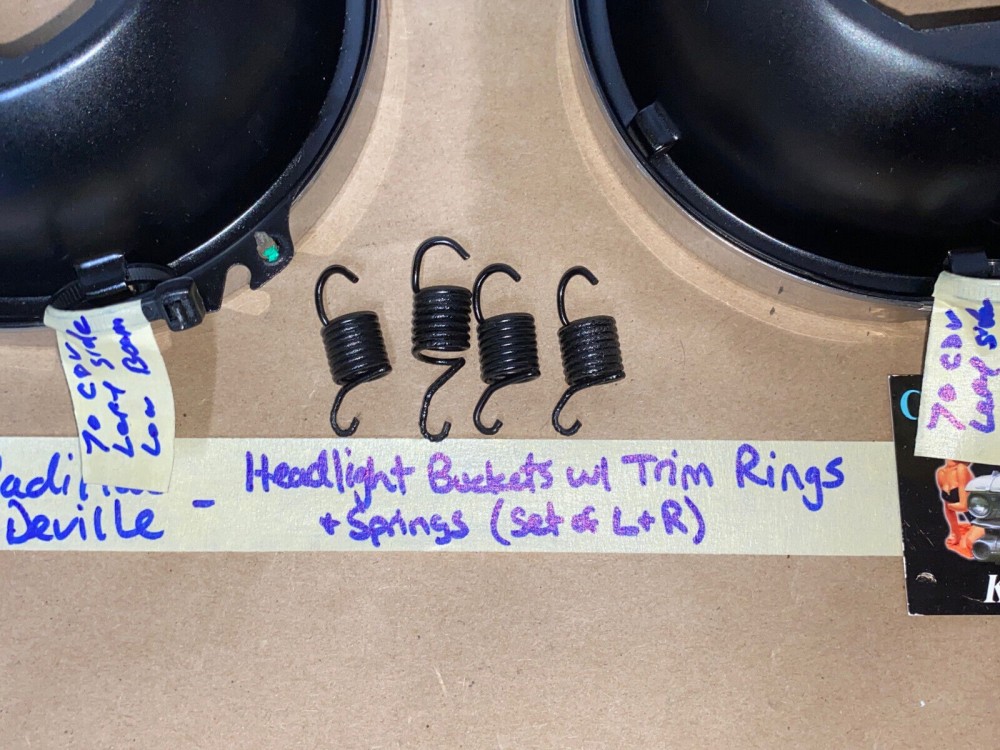 70 CDV
Left side
Low Beam
70 CDV
Left side
adillac
Deville
- Headlight Buckets w/ Trim Rings
+ Springs (Set of L+R)
C
K